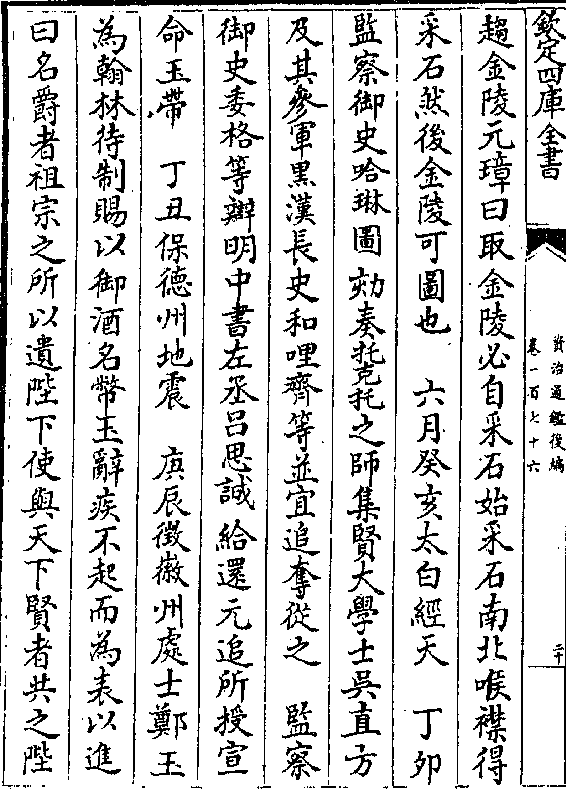 欽定四庫全書
資治通鑑後編
卷一百七十六
二十
趨金陵元璋曰取金陵必自采石始采石南北喉襟得
采石然後金陵可圖也　六月癸亥太白經天　丁卯
監察御史哈琳圖劾奏托克托之師集賢大學士吳直方
及其參軍黑漢長史和哩齊等並宜追奪從之　監察
御史委格等辯明中書左丞吕思誠給還元追所授宣
命玉帶　丁丑保德州地震　庚辰徵徽州處士鄭玉
為翰林待制賜以御酒名幣玉辭疾不起而為表以進
曰名爵者祖宗之所以遺陛下使與天下賢者共之陛